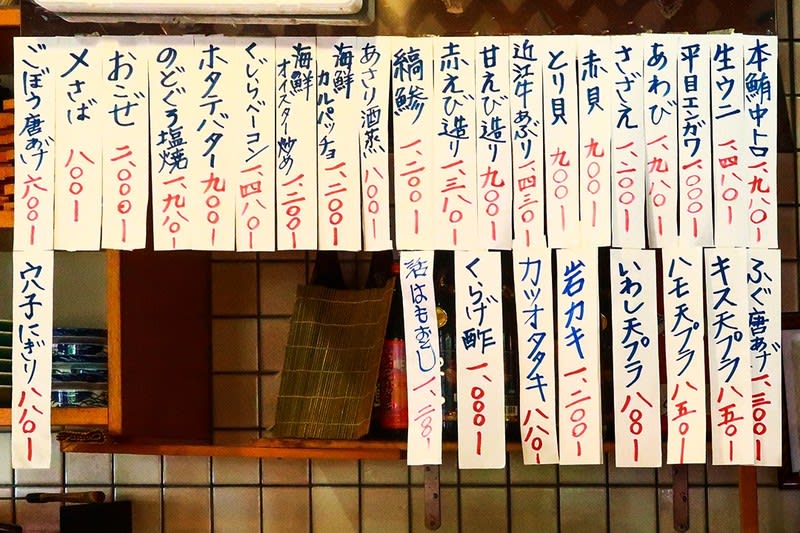 本鮪中トロ 一、九八〇ー
生ウニ 一、四八〇ー
平目エンガワ 一、〇〇〇ー
あわび 一、九八〇ー
さざえ 一、二〇〇ー
赤貝 九〇〇ー
とり貝 九〇〇ー
近江牛あぶり 一、四三〇ー
甘えび造り 九〇〇ー
赤えび造り 一、三八〇ー
縞鯵 一、二〇〇ー
あさり酒蒸 八〇〇ー
海鮮カルパッチョ 一、二〇〇ー
海鮮オイスター炒め 一、二〇〇ー
くじらベーコン 一、四八〇ー
ホタテバター 九〇〇ー
のどぐろ塩焼 一、九八〇ー
おこぜ 二、〇〇〇ー
〆さば 八〇〇ー
ごぼう唐あげ 六〇〇ー
ふぐ唐あげ 一、三〇〇ー
キス天プラ 八五〇ー
ハモ天プラ 八五〇ー
いわし天プラ 八〇ー
岩カキ 一、二〇〇ー
カツオタタキ 八八〇ー
くらげ酢 一、〇〇〇ー
活はもおとし 一、二〇ー
穴子にぎり 八八〇ー